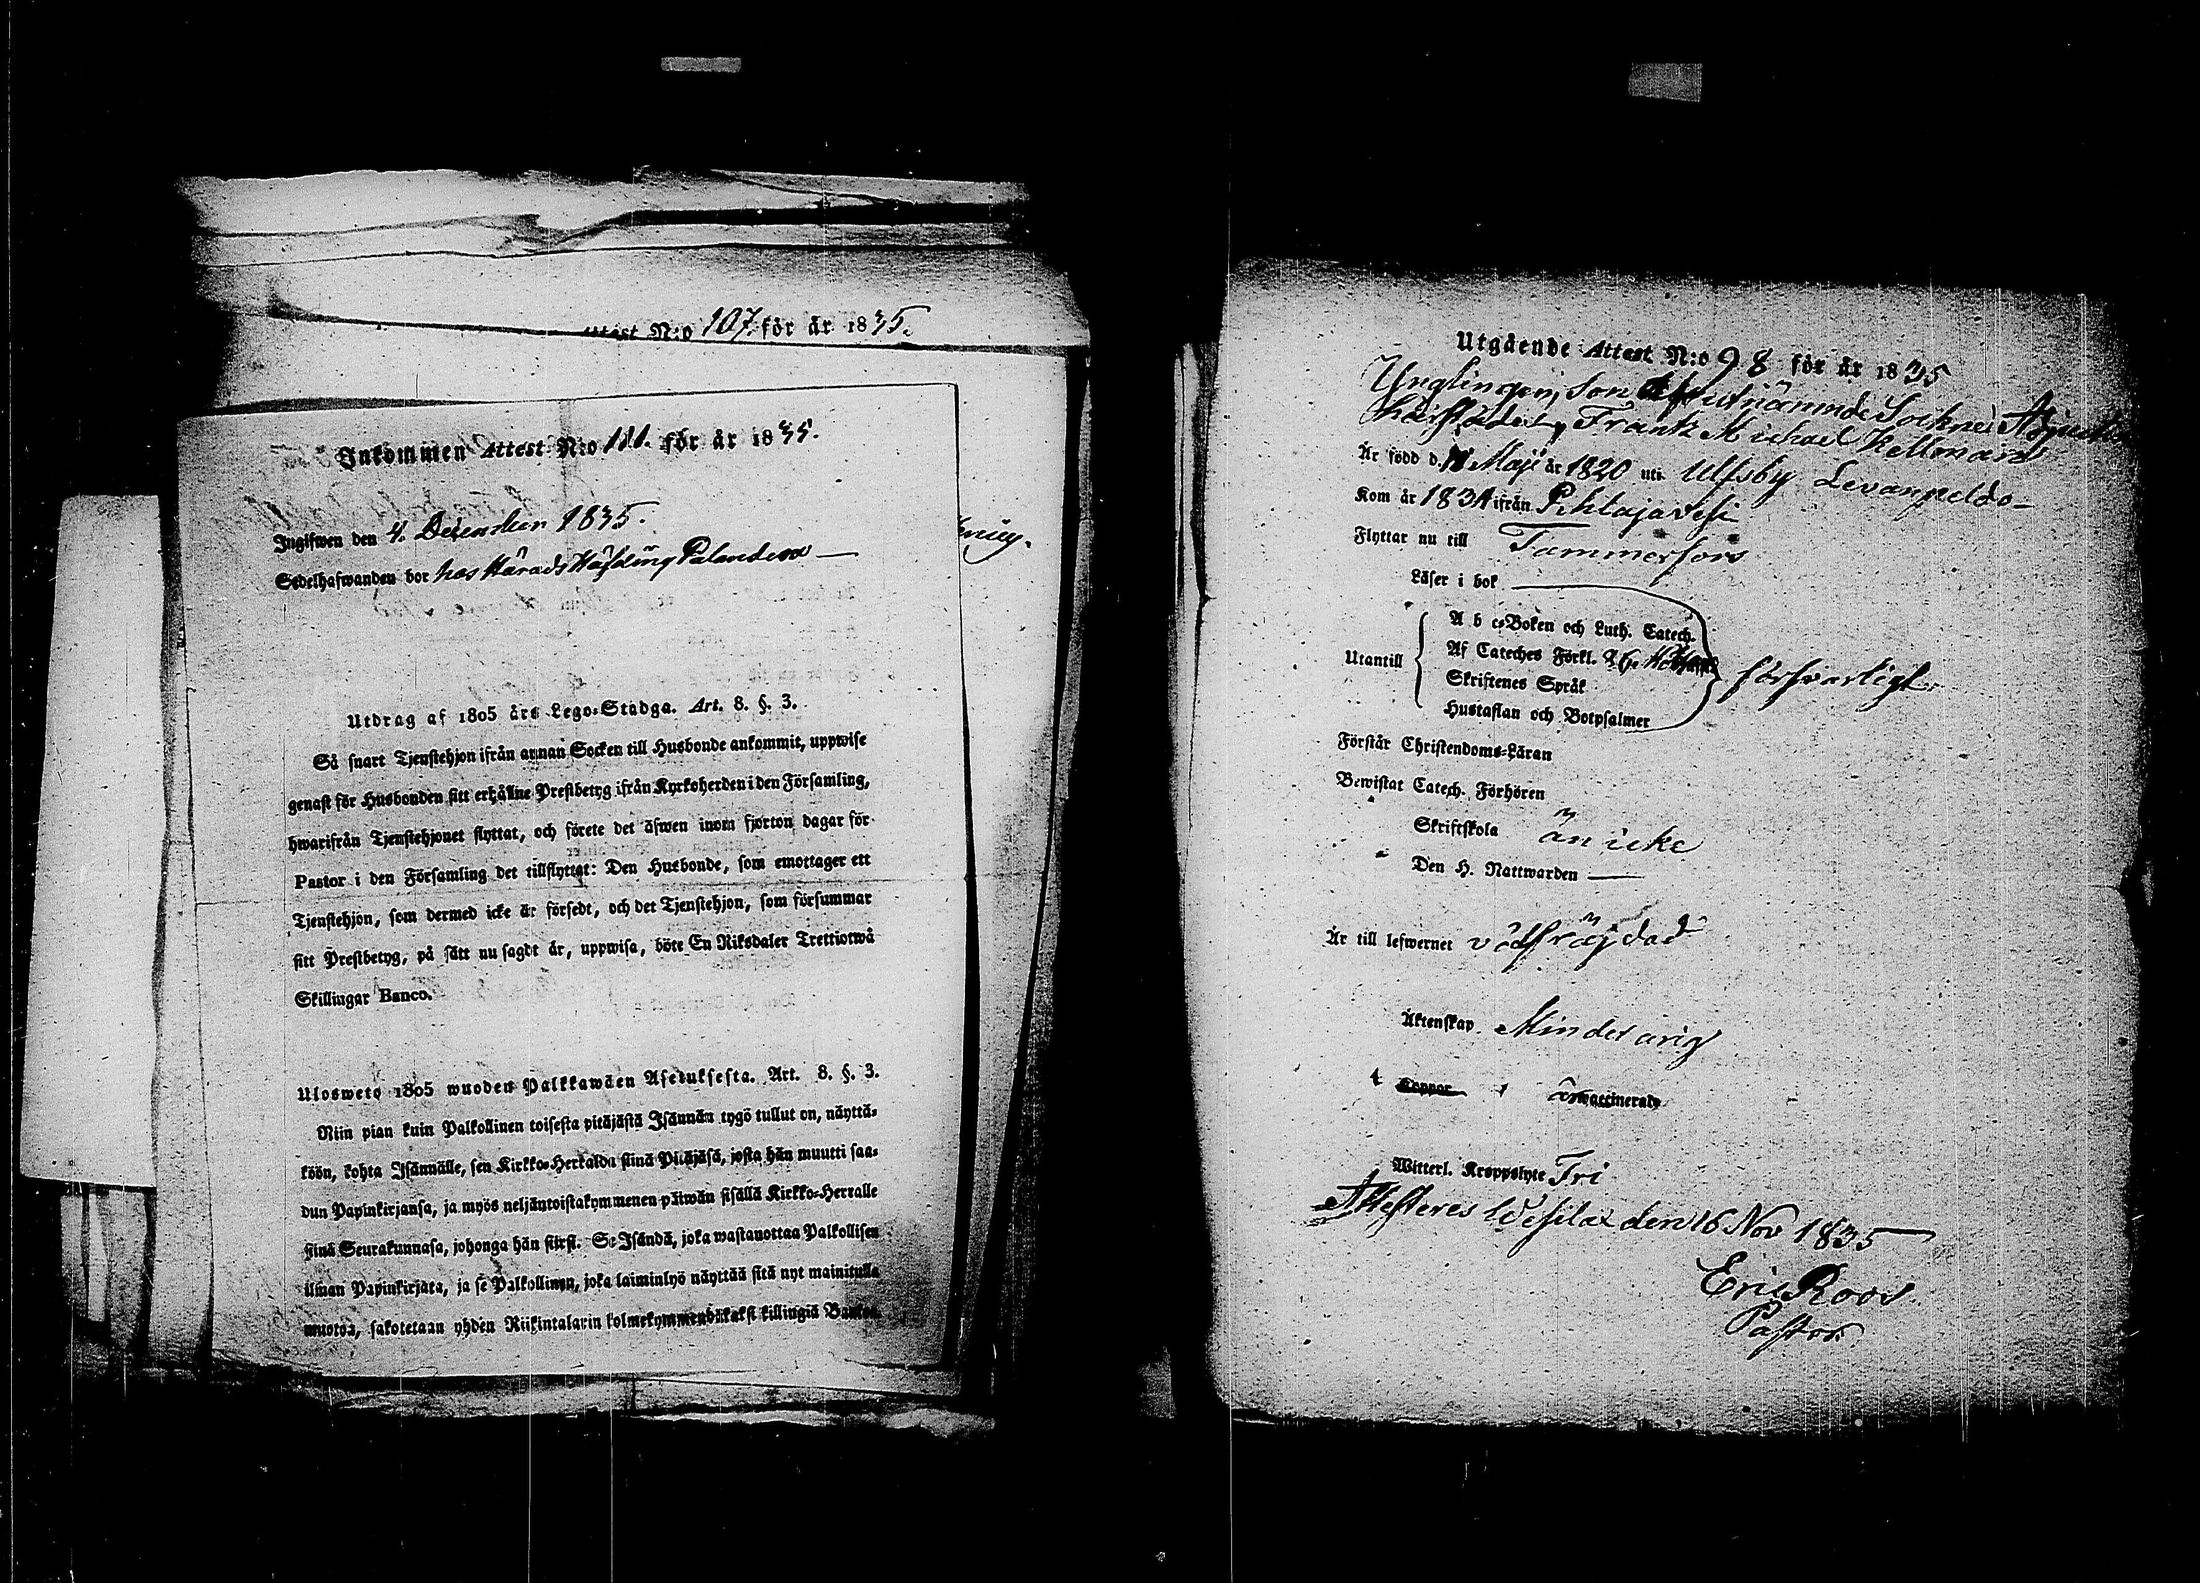 Attest N:o 107. för år 1835.
Inkommen Attest N:o 111. för år 1835.
Ingifwen den 4. December 1835.
Sedelhafwanden bor hos Härads Höfding
Utdrag af 1805 års Lego-Stadga. Art. 8. §. 3.
Så snart Tjenstehjon ifrån annan Socken till Husbonde ankommit, uppwise
genast för Husbonden sitt erhållne Prestbetyg ifrån Kyrkoherden i den Församling,
hwarifrån Tjenstehjonet flyttat, och förete det äfwen inom fjorton dagar för
Pastor i den Församling det tillflyttat: Den Husbonde, som emottager ett
Tjenstehjon, som dermed icke är försedt, och det Tjenstehjon, som försummar
sitt Prestbetyg, på sätt nu sagdt är, uppwisa, böte En Riksdaler Trettiotwå
Skillingar Banco.
Ulosweto 1805 wuoden Palkkawäen Asetuksesta. Art. 8. §. 3.
Niin pian kuin Palkollinen toisesta pitäjästä Isännän tygö tullut on, näyttä-
köön, kohta Isännälle, sen Kirkko-Herralda siinä Pitäjäsä, josta hän muutti saa-
dun Papinkirjansa, ja myös neljäntoistakymmenen päiwän sisällä Kirkko-Herralle
siinä Seurakunnasa, johonga hän siirsi. Se Isändä, joka wastanottaa Palkollisen
ilman Papinkirjata, ja se Palkollinen, joka laiminlyö näyttää sitä nyt mainitulla
muotoa, sakotetaan yhden Riikintalarin kolmekymmendäkaksi killingiä Bankoa.
Utgående Attest N:o 98 för år 1835
Ynglingen, Son af utnämnde Sockne
Frank Michael Hellman
Är född d. Maji år 1820 uti Ulfsby Levanpeldo
Kom år 1834 ifrån Pihlajavesi
Flyttar nu till Tammerfors
Läser i bok
Utantill
A b c-Boken och Luth. Catech.
Af Cateches Förkl.
Skriftenes Språk
Hustaflan och Botpsalmer
försvarligt
Förstår Christendoms-Läran
Bewistat Catech. Förhören
Skriftskola än icke
Den H. Nattwarden
Är till lefwernet välfräjdad
Äktenskap Minderårig
Koppor är vaccinerad
Witterl. Kroppslyte Fri
Attesteres Wesilax den 16 Nov 1835
Eric Roos
Pastor